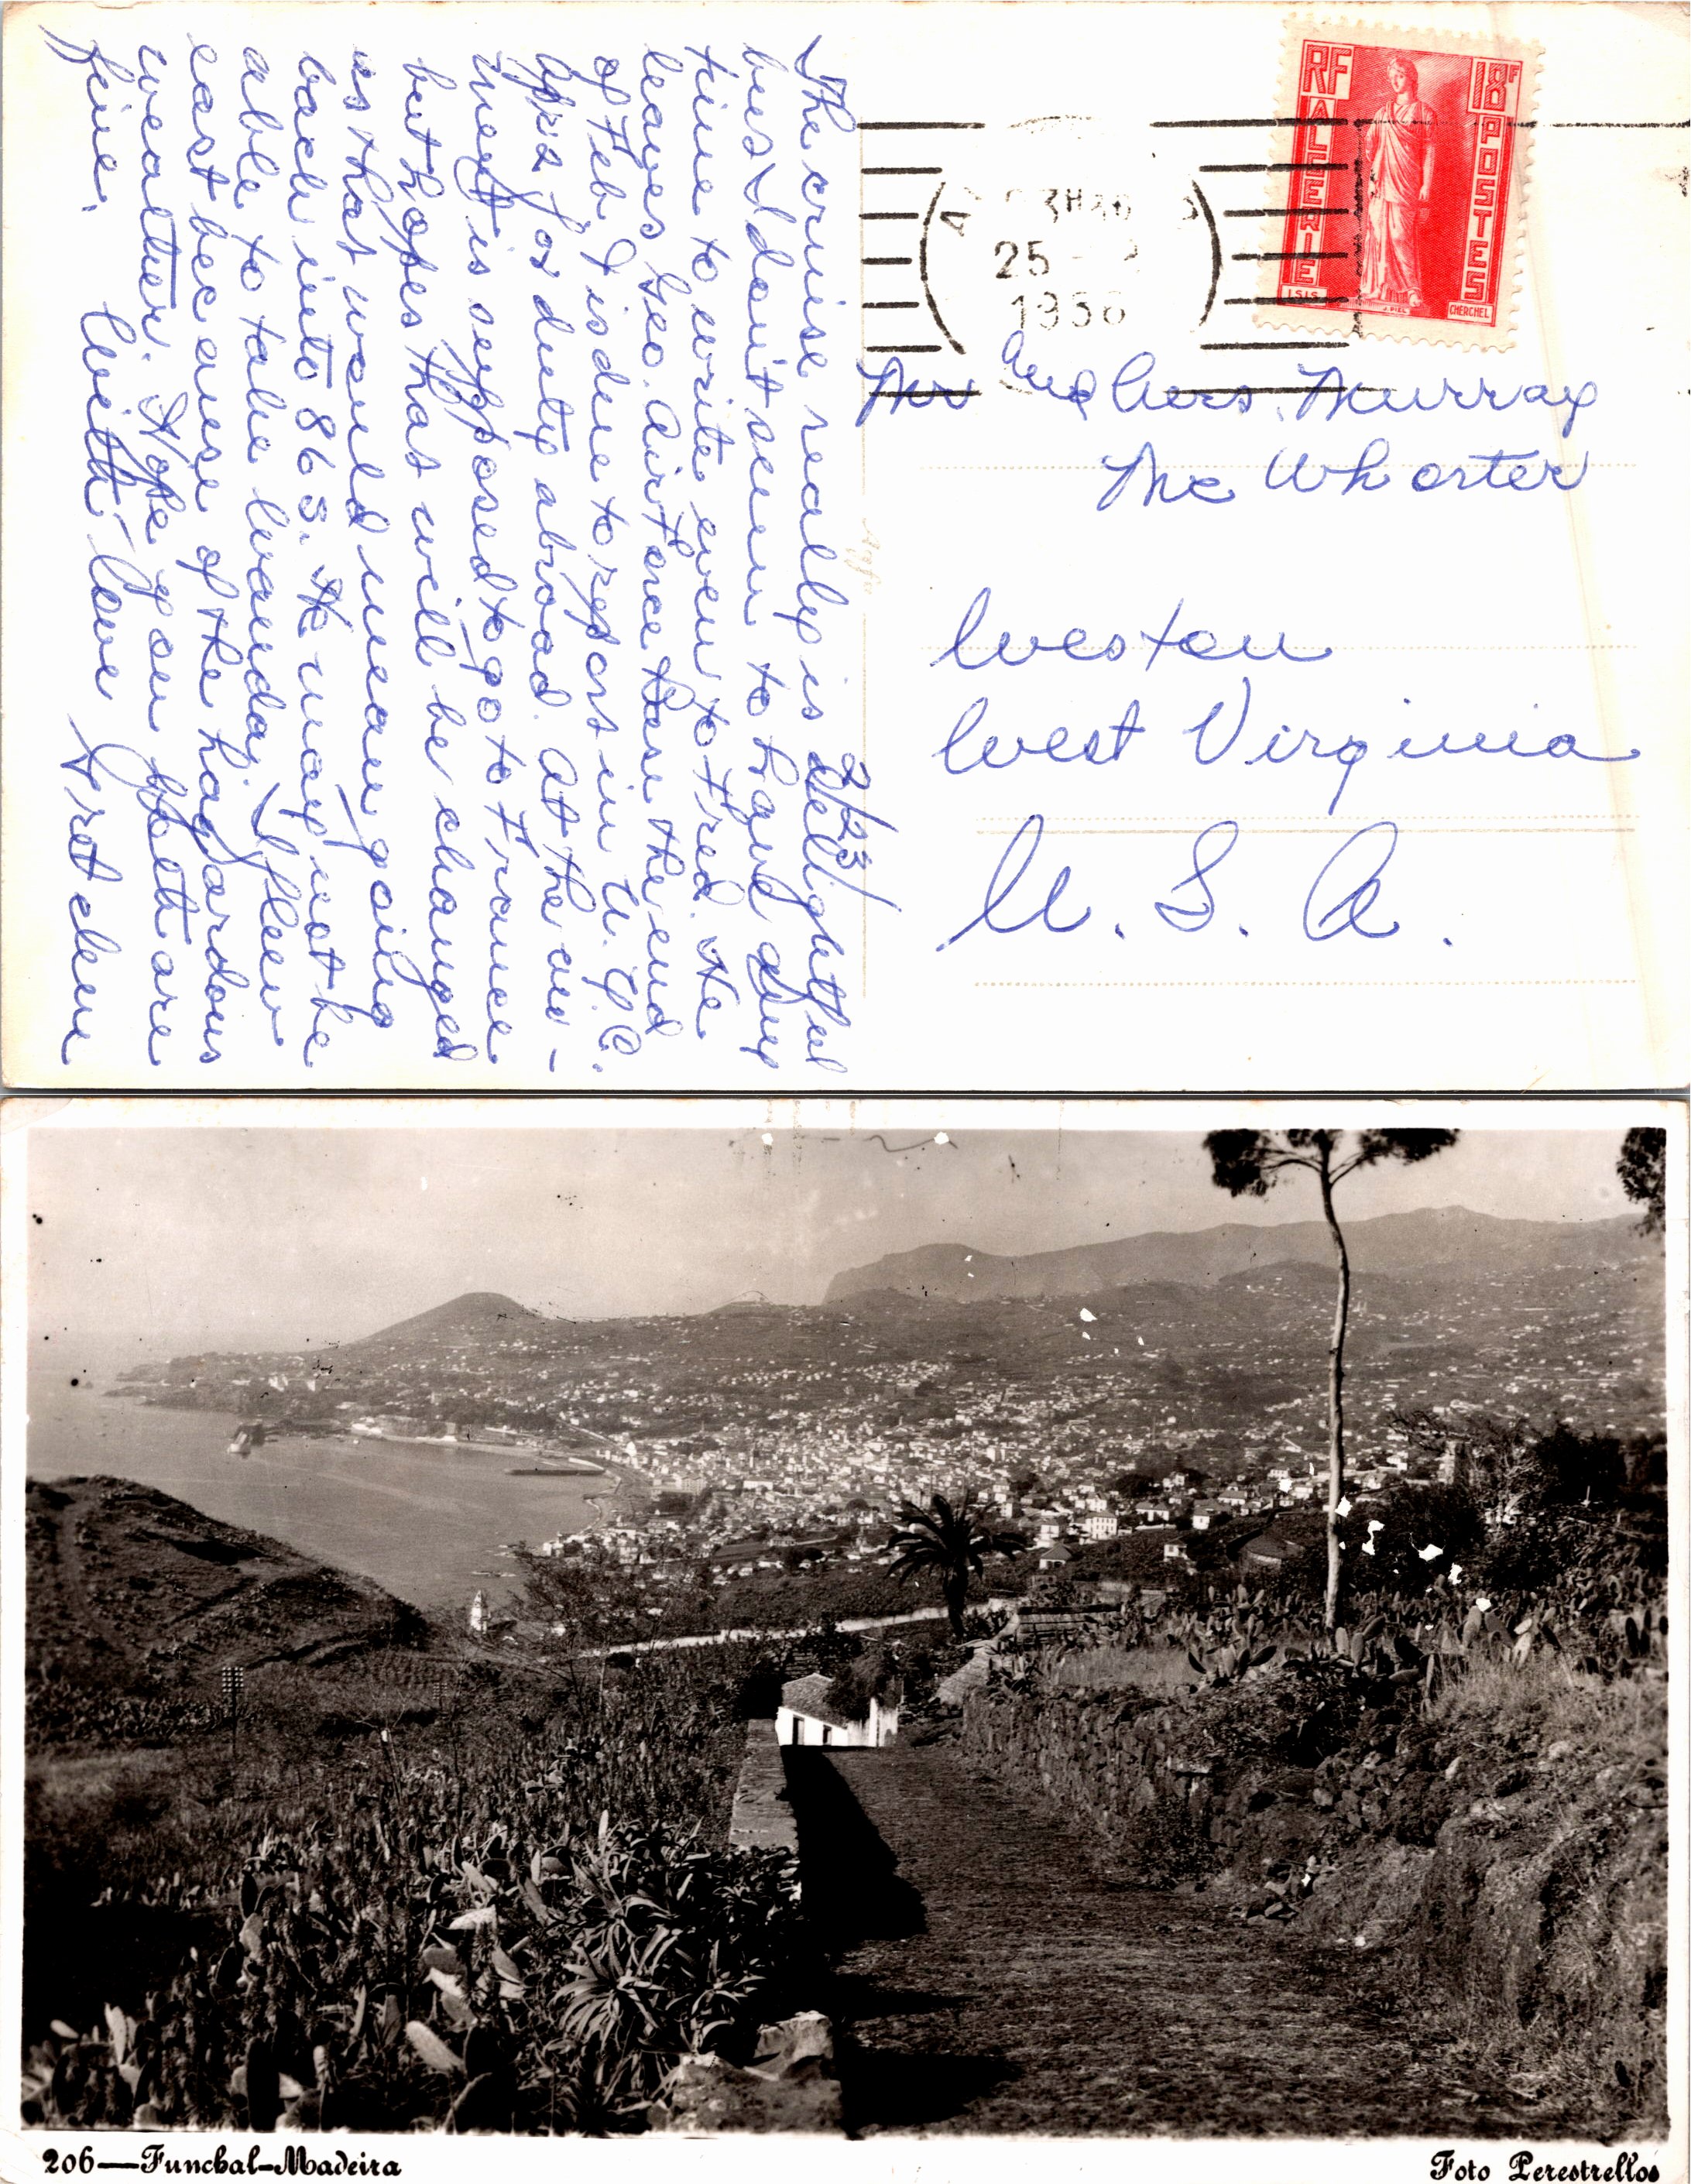 2/23/
The cruise really is delightful
but I don't seem to have any
time to write even to Fred. He
leaves Geo. Air Force Base the end
of Feb. & is due to report in N.C.
Apr 2 for duty abroad. At the mo-
ment is supposed to go to France
but hopes that will be changed
as that would mean going
back into 86 S. He may not be
able to take Wanda. I flew
east because of the hazardous
weather. Hope you both are
fine.
With love
RF
18F
ALGERIE
POSTES
ISIS
CHERCHEL
3H30
25 -
1956
Mr and Mrs. Murray
Mc Whorter
Weston
West Virginia
U. S. A.
206—Funchal-Madeira
Foto Perestrellos